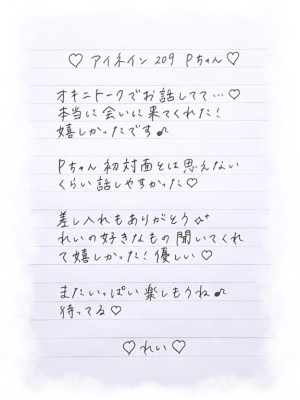 ♡ アイネイン 209 Pちゃん ♡
オキニトークでお話してて…♡
本当に会いに来てくれた!
嬉しかったです♪
Pちゃん 初対面とは思えない
くらい話しやすかった♡
差し入れもありがとう✧
れいの好きなもの聞いてくれ
て嬉しかった!優しい♡
またいっぱい楽しもうね♪
待ってる♡
♡ れい ♡